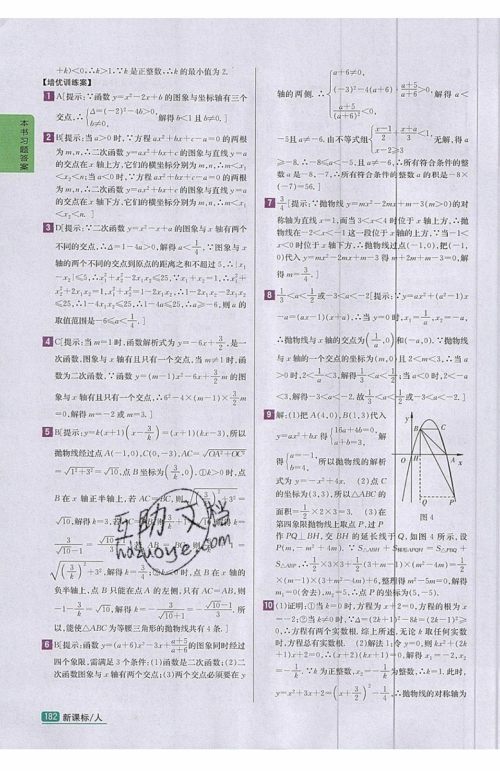 +k)<0,∴k>1.∵k是正整数,∴k的最小值为2.
【培优训练案】
1 A[提示:∵函数y=x²-2x+b的图象与坐标轴有三个
交点,∴{Δ=(-2)²-4b>0, b≠0, 解得b<1且b≠0.]
2 B[提示:当a>0时,∵方程ax²+bx+c-a=0的两根
为m,n,∴二次函数y=ax²+bx+c的图象与直线y=a
的交点在x轴上方,它们的横坐标分别为m,n,∴m<x₁
<x₂<n;当a<0时,∵方程ax²+bx+c-a=0的两根
为m,n,∴二次函数y=ax²+bx+c的图象与直线y=a
的交点在x轴下方,它们的横坐标分别为m,n,∴m<x₁
<x₂<n.]
3 D[提示:∵二次函数y=x²-x+a的图象与x轴有两
个不同的交点,∴Δ=1-4a>0,解得a<1/4.∵图象与x
轴的两个不同的交点到原点的距离之和不超过5,∴|x₁
-x₂|≤5,∴x₁²+x₂²-2x₁x₂≤25.∵x₁+x₂=1,∴x₁²
+2x₁x₂+x₂²=1,x₁²+x₂²=1-2x₁x₂,∴1-2x₁x₂-2x₁x₂
≤25,∴1-4x₁x₂≤25,∴1-4a≤25,∴a≥-6,则a的
取值范围是-6≤a<1/4.]
4 C[提示:当m=1时,函数解析式为y=-6x+3/2,是一
次函数,图象与x轴有且只有一个交点,当m≠1时,函
数为二次函数.∵函数y=(m-1)x²-6x+3/2m的图
象与x轴有且只有一个交点,∴6²-4×(m-1)×3/2m
=0,解得m=-2或m=3.]
5 B[提示:y=k(x+1)(x-3/k)=(x+1)(kx-3),所以
抛物线经过点A(-1,0),C(0,-3),AC=√(OA²+OC²)
=√(1²+3²)=√10,点B坐标为(3/k,0).①k>0时,点
B在x轴正半轴上,若AC=BC,则√((3/k)²+3²)=
√10,解得k=3,若
3/(√10-1)
√((3/k)²+3²),解得k=3/4;②k<0时,点B在x轴的
负半轴上,点B只能在点A的左侧,只有AC=AB,则
-1-3/k=√10,解得k=-3/(√10+1)=-(√10-1)/3.所
以,能使△ABC为等腰三角形的抛物线共有4条.]
6 B[提示:函数y=(a+6)x²-3x+(a+5)/(a+6)的图象同时经过
四个象限,需满足3个条件:(1)函数是二次函数;(2)二
次函数图象与x轴有两个交点;(3)两个交点必须要在y
轴的两侧.∴{a+6≠0, (-3)²-4(a+6)·(a+5)/(a+6)>0, (a+5)/(a+6)²<0, 解得a<
-5且a≠-6.由不等式组{(x-1)/2≥(x+a)/3, x-2≥3 <1,无解,得a
≥-8.∴-8≤a<-5,且a≠-6,∴所有符合条件的整
数a是-8,-7,∴所有符合条件的整数a的积是-8×
(-7)=56.]
7 3/4[提示:∵抛物线y=mx²-2mx+m-3(m>0)的对
称轴为直线x=1,而当3<x<4时位于x轴上方,∴抛
物线在-2<x<-1这一段位于x轴的上方.∵当-1<
x<0时位于x轴下方,∴抛物线过点(-1,0),把(-1,
0)代入y=mx²-2mx+m-3得m+2m+m-3=0,解
得m=3/4.]
8 1/3<a<1/2或-3<a<-2[提示:∵y=ax²+(a²-1)x
-a=(ax-1)(x+a),∴当y=0时,x₁=1/a,x₂=-a,
∴抛物线与x轴的交点为(1/a,0)和(-a,0).∵抛物线
与x轴的一个交点的坐标为(m,0)且2<m<3,∴当a
>0时,2<1/a<3,解得1/3<a<1/2;当a<0时,2<-a
<3,解得-3<a<-2.故1/3<a<1/2或-3<a<-2.]
9 解:(1)把A(4,0),B(1,3)代入
y=ax²+bx得{16a+4b=0, a+b=3, 解
得{a=-1, b=4, 所以抛物线的解析
式为y=-x²+4x. (2)点C
的坐标为(3,3),所以△ABC的
面积=1/2×2×3=3. (3)在
第四象限抛物线上取点P,过P
作PQ⊥BH,交BH的延长线于Q,如图4所示.设
P(m,-m²+4m).
S△AHP,∴1/2×3×3+1/2(3+m-1)(m²-4m)=1/2
×(m-1)×(3+m²-4m)+6,整理得m²-5m=0,解得
m₁=0(舍去),m₂=5.∴点P的坐标为(5,-5).
y
B
C
O
H
A
x
Q
P
图4
10 (1)证明:①当k=0时,方程为x+2=0,方程的根为x
=-2;②当k≠0时,∵Δ=(2k+1)²-8k=(2k-1)²≥
0,∴方程有两个实数根.综上所述,无论k取任何实数
时,方程总有实数根. (2)解法1:令y=0,则kx²+(2k
+1)x+2=0,∴(x+2)(kx+1)=0,解得x₁=-2,x₂
=-1/k.∵k为正整数,x₂=-1/k为整数,∴k=1.此时,
y=x²+3x+2=(x+3/2)²-1/4,∴抛物线的对称轴为
本书习题答案
互助文档
hazuoye.com
182 新课标/人